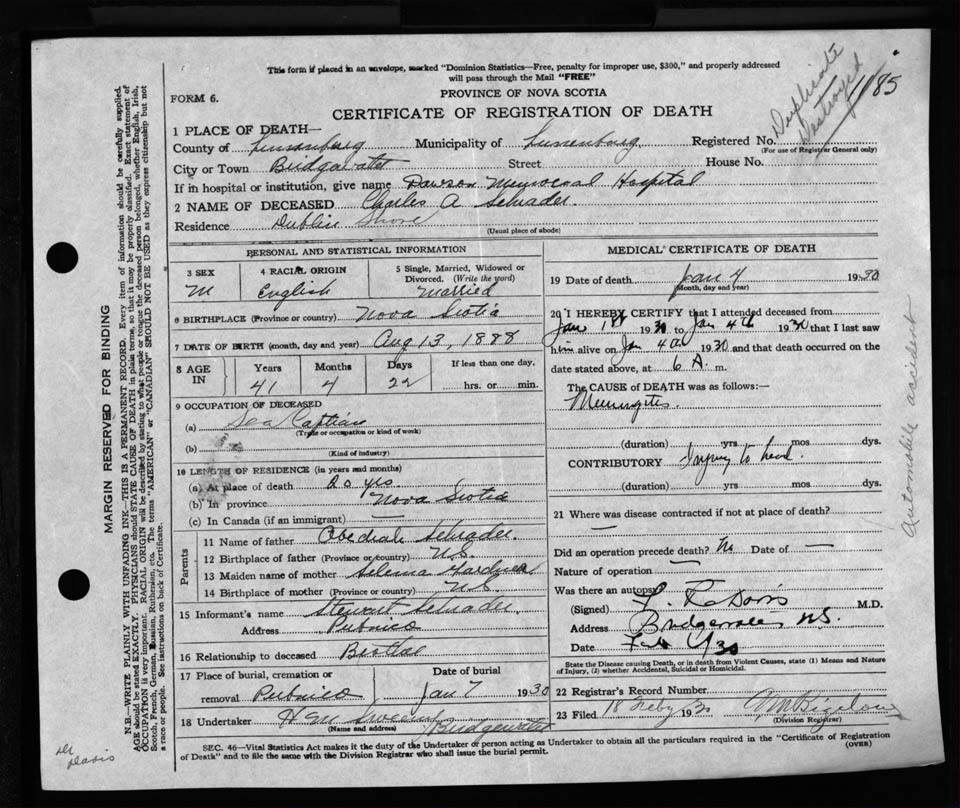 This form if placed in an envelope, marked "Dominion Statistics—Free, penalty for improper use, $300," and properly addressed
will pass through the Mail "FREE"
Duplicate
Destroyed
1185
PROVINCE OF NOVA SCOTIA
FORM 6.
CERTIFICATE OF REGISTRATION OF DEATH
1 PLACE OF DEATH—
County of Lunenburg Municipality of Lunenburg Registered No.
(For use of Registrar General only)
City or Town Bridgewater Street House No.
If in hospital or institution, give name Dawson Memorial Hospital
2 NAME OF DECEASED Charles A. Schrader.
Residence Dublin Shore
(Usual place of abode)
PERSONAL AND STATISTICAL INFORMATION
3 SEX 4 RACIAL ORIGIN 5 Single, Married, Widowed or
Divorced. (Write the word)
M English Married
6 BIRTHPLACE (Province or country) Nova Scotia
7 DATE OF BIRTH (month, day and year) Aug 13, 1888
8 AGE IN Years Months Days If less than one day,
41 4 22 hrs. or min.
9 OCCUPATION OF DECEASED
(a) Sea Captian
(Trade or occupation or kind of work)
(b)
(Kind of industry)
10 LENGTH OF RESIDENCE (in years and months)
(a) At place of death yrs
(b) In province Nova Scotia
(c) In Canada (if an immigrant) —
Parents
11 Name of father Obediah Schrader.
12 Birthplace of father (Province or country) N.S.
13 Maiden name of mother Selema Gardner
14 Birthplace of mother (Province or country) N.S
15 Informant's name Stewart Schrader.
Address Pubnico
16 Relationship to deceased Brother
17 Place of burial, cremation or Date of burial
removal Pubnico Jan 7 1930
18 Undertaker Bridgewater
(Name and address)
MEDICAL CERTIFICATE OF DEATH
19 Date of death Jan 4 1930
(Month, day and year)
20 I HEREBY CERTIFY that I attended deceased from
Jan 1st 1930 to Jan 4th 1930 that I last saw
him alive on Jan 4th 1930 and that death occurred on the
date stated above, at 6 A. m.
The CAUSE of DEATH was as follows:—
Meningites.
(duration) yrs mos dys.
CONTRIBUTORY Injury to head.
(duration) yrs mos dys.
21 Where was disease contracted if not at place of death?
—
Did an operation precede death? No Date of —
Nature of operation —
Was there an autopsy
(Signed) M.D.
Address Bridgewater NS.
Date Feb 30
State the Disease causing Death, or in death from Violent Causes, state (1) Means and Nature
of Injury, (2) whether Accidental, Suicidal or Homicidal.
22 Registrar's Record Number
23 Filed 18 Feby 1930
(Division Registrar)
SEC. 46—Vital Statistics Act makes it the duty of the Undertaker or person acting as Undertaker to obtain all the particulars required in the "Certificate of Registration
of Death" and to file the same with the Division Registrar who shall issue the burial permit.
(OVER)
Automobile accident
MARGIN RESERVED FOR BINDING
N.B.—WRITE PLAINLY WITH UNFADING INK—THIS IS A PERMANENT RECORD. Every item of information should be carefully supplied.
AGE should be stated EXACTLY. PHYSICIANS should STATE CAUSE OF DEATH in plain terms, so that it may be properly classified. Exact statement of
OCCUPATION is very important. RACIAL ORIGIN will be described by stating to what people or tongue the deceased person belonged, whether English, Irish,
Scotch, French, German, Russian, Ruthenian, etc. The terms "AMERICAN" or "CANADIAN" SHOULD NOT BE USED as they express citizenship but not
a race or people. See instructions on back of Certificate.
Dr
Davis